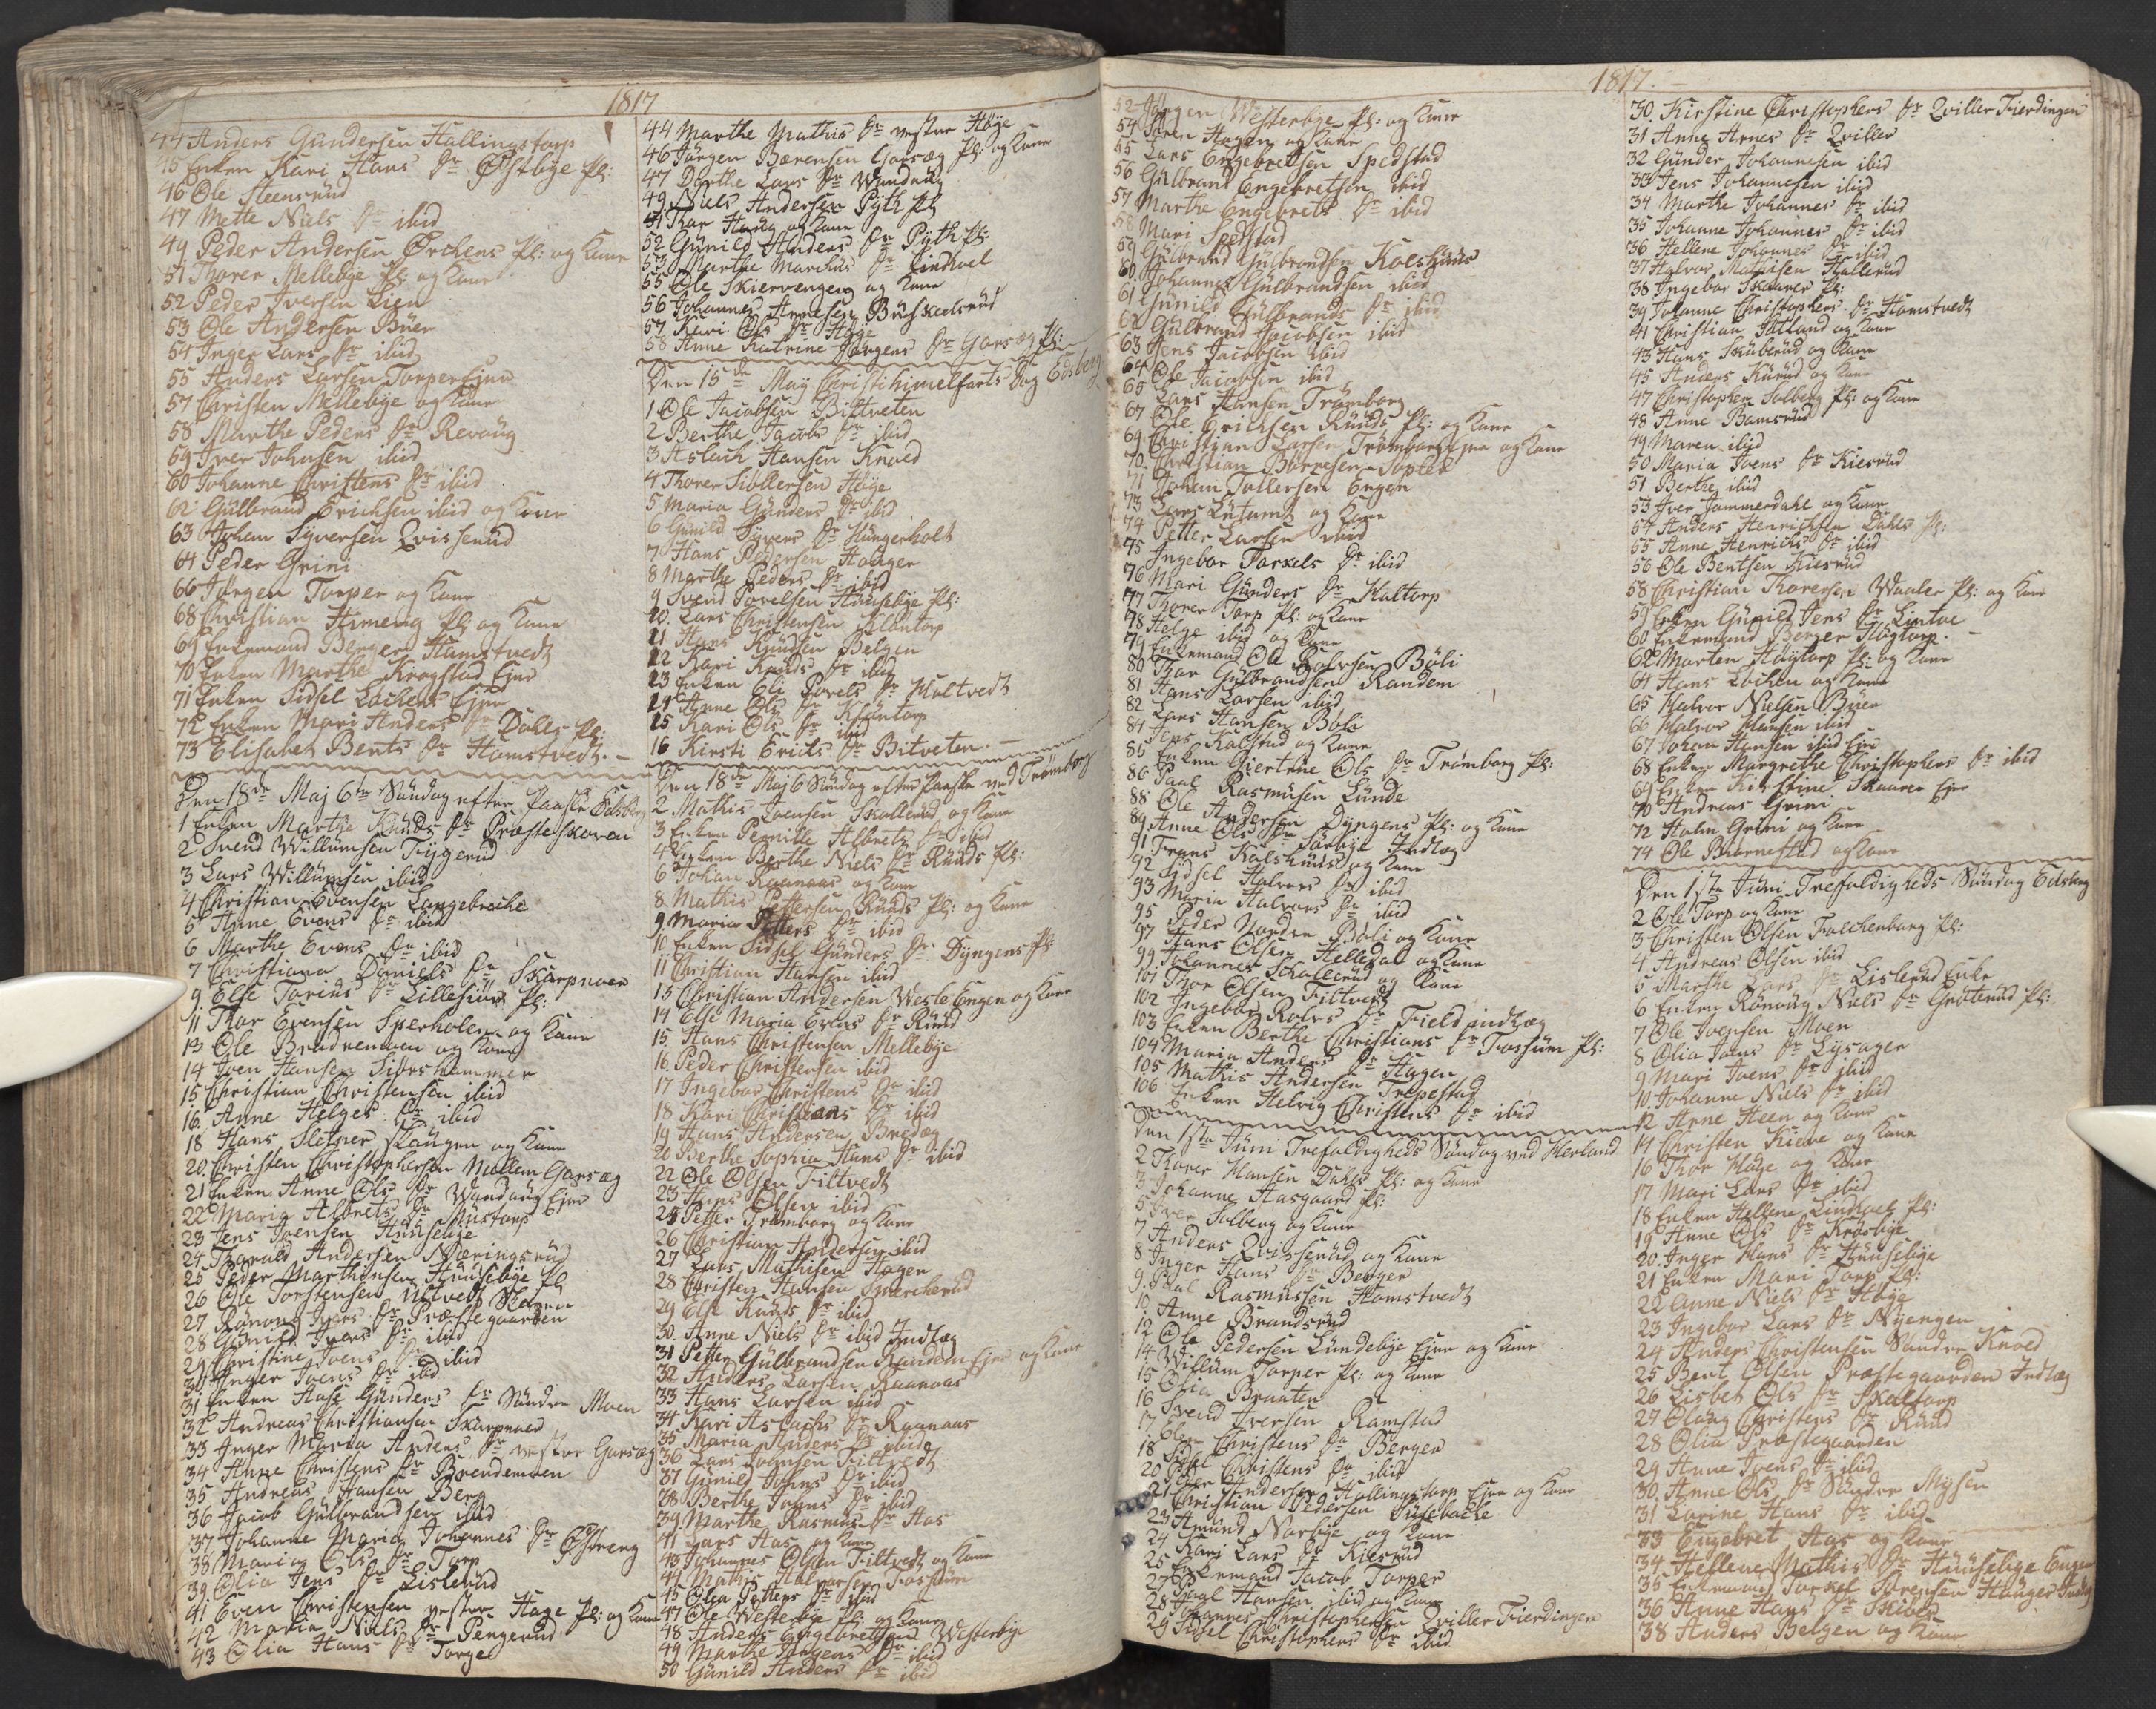 1817
44 Anders Gundersen Hallingstorp
45 Enken Kari Hans Dr Østbye Pl:
46 Ole Steensrud
47 Mette Niels Dr ibid
49 Peder Andersen Ørchens Pl: og Kone
51 Thorer Mellebye Pl: og Kone
52 Peder Iversen Lien
53 Ole Andersen Buer
54 Inger Lars Dr ibid
55 Anders Larsen Torper Ejer
57 Christen Mellebye og Kone
58 Marthe Peders Dr Revoug
59 Iver Johnsen ibid
60 Johanne Christens Dr ibid
62 Gulbrand Erichsen ibid og Kone
63 Johan Syversen Qvisserud
64 Peder Grini
66 Jørgen Torper og Kone
68 Christian Himeng Pl: og Kone
69 Enkemand Berger Hamstvedt
70 Enken Marthe Krogstad Ejer
71 Enken Sidsel Lochens Ejer
72 Enken Mari Anders Dr Dahls Pl:
73 Elisabet Bents Dr Hamstvedt. –
Den 18de Maj 6te Søndag efter Paaske Edsberg
1 Enken Marthe Knuds Dr Præsteskoven
2 Svend Willumsen Tygerud
3 Lars Willumsen ibid
4 Christian Evensen Langebreche
5 Anne Evens Dr ibid
6 Marthe Evens Dr ibid
7 Christiana Daniels Dr Skarpnoer
9 Else Torius Dr Lillesiøn Pl:
11 Thor Evensen Sperholen og Kone
13 Ole Brudremoen og Kone
14 Iven Hansen Sibershammer
15 Christian Christensen ibid
16 Anne Helges Dr ibid
18 Hans Sletner Skaugen og Kone
20 Christen Christophersen Mellem Garsæg
21 Enken Anne Ols Dr Wandaug Ejer
22 Maria Albrets Dr Mustorp
23 Jens Joensen Huuselbye
24 Tharald Andersen Næringsrud
25 Peder Marthinsen Huuselbye Pl
26 Ole Torstensen Ultvedt Skoven
27 Rønoug Ivers Dr Præstegaarden
28 Gunild Ivers Dr ibid
29 Christine Joens Dr ibid
30 Inger Joens Dr ibd
31 Enken Aase Gunders Dr Søndre Moen
32 Andreas Christiansen Skarpnoer
33 Inger Maria Anders Dr vestre Garsæg
34 Anne Christens Dr Brendemoen
35 Andreas Hansen Berg
36 Jacob Gulbrandsen ibid
37 Johanne Maria Johannes Dr Østreng
38 Maria Ols Dr Torp
39 Olia Jens Dr Lislerud
41 Even Christensen vestre Hage Pl: og Kone
42 Maria Niels Dr Pengerud
43 Olia Hans Dr Torgel
44 Marthe Mathis Dr vestre Høye
46 Jørgen Børensen Garsæg Pl: og Kone
47 Dorthe Lars Dr Wandaug
49 Niels Andersen Pyth Pl
51 Thor Haug og Kone
52 Gunild Anders Dr Pyth Pl:
53 Marthe Marchus Dr Lindhoel
55 Ole Skiervengen og Kone
56 Johannes Arnesen Buskœlsrud
57 Kari Ols Dr Høye
58 Anne Katrine Jørgens Dr Garsæg Pl:
Den 15de Maij Christi himelfarts Dag Edsberg
1 Ole Jacobsen Bitveten
2 Berthe Jacobs Dr ibid
3 Aslach Hansen Knoed
4 Thorer Siøllersen Høye
5 Maria Gunders Dr ibid
6 Gunild Syvers Dr Hungerholt
7 Hans Pedersen Houger
8 Marthe Peders Dr ibid
9 Svend Povelsen Huuselbye Pl:
20. Lars Christensen Klontorp
21 Hans Knudsen Belgen
22 Kari Knuds Dr ibid
23 Enken Eli Povels Dr Hultvedt
24 Anne Ols Dr Kløntorp
25 Kari Ols Dr ibid
16 Kirsti Erichs Dr Bitveten. –
Den 18de Maj 6 Søndag efter Paaske ved Trømborg
2 Mathis Joensen Skollerud og Kone
3 Enken Pernille Albrets Dr ibid
4 Enken Berthe Niels Dr Ruuds Pl:
6 Johan Raanaas og Kone
8 Mathis Pettersen Ruuds Pl: og Kone
9 Maria Petters Dr ibid
10 Enken Sidsel Gunders Dr Dyngens Pl
11 Christian Hansen ibid
13 Christian Andersen Wesle Engen og Kone
14 Else Maria Evens Dr Ruud
15. Hans Christensen Mellebye
16. Peder Christensen ibid
17 Ingebor Christens Dr ibid
18 Kari Christians Dr ibid
19 Hans Andersen Bredæg
20 Berthe Sophia Hans Dr ibid
22 Ole Olsen Filtvedt
23 Hans Olsen ibid
25 Petter Trømborg og Kone
26 Christian Andersen ibid
27 Lars Mathisen Hagen
28 Christen Hansen Smercherud
29 Else Knuds Dr ibid
30. Anne Niels Dr ibid Indlæg
31 Petter Gulbrandsen Randem Ejer og Kone
32 Anders Larsen Raanaas
33 Hans Larsen ibid
34 Kari Aslachs Dr Raanaas
35 Maria Anders Dr ibid
36 Lars Johnsen Filtvedt
37 Gunild Johns Dr ibid
38 Berthe Johns Dr ibid
39. Marthe Rasmus Dr Aas
41 Lars Aas og Kone
43 Johannes Olsen Filtvedt og Kone
44 Mathis Halvorsen Fossum
45 Olea Petters Dr ibid
47 Ole Westerbye Pl: og Kone
48 Anders Engebretsen Westerbye
49 Marthe Jørgens Dr ibid
50 Gunild Anders Dr ibid
1817. –
52 Jørgen Westerbye Pl: og Kone
54 Søren Hagen og Kone
55 Lars Engebretsen Spedstad
56 Gulbrand Engebretsen ibid
57 Marthe Engebrets Dr ibid
58 Mari Spedstad
59 Gulbrand Gulbrandsen Kolshuus
60 Johannes Gulbrandsen ibid
61 Gunild Gulbrands Dr ibid
62 Gulbrand Jacobsen ibid
63 Jens Jacobsen ibid
64 Ole Jacobsen ibid
65 Lars Hansen Trømborg
67 Ole Erichsen Ruuds Pl: og Kone
69 Christian Larsen Trømborg Ejer og Kone
70. Christian Børresen Toplek
71 Johan Tollersen Engen
73 Lars Lutumb og Kone
74 Petter Larsen ibid
75 Ingebor Torkels Dr ibid
76 Mari Gunders Dr Kaltorp
77 Thorer Torp Pl: og Kone
78 Helge ibid og Kone
79 Enkemand Ole Rolvsen Bøli
80 Thor Gulbrandsen Randem
81 Hans Larsen ibid
82 Lars Hansen Bøli
84 Jens Kalstad og Kone
85 Enken Giertrue Ols Dr Trømborg Pl:
86 Paal Rasmusen Lunde
88 Ole Andersen Dyngens Pl: og Kone
89 Anne Ols Dr Sørbye Indlæg
91 Frans Kalshuus og Kone
92 Sidsel Halvors Dr ibid
93 Maria Halvors Dr ibid
95 Peder Nordre Bøli og Kone
97 Hans Olsen Helledal og Kone
99 Johannes Schollerud og Kone
101 Thor Olsen Filtvedt
102 Ingebor Rolvs Dr Field indlæg
103 Enken Berthe Christians Dr Fossum Pl:
104 Maria Anders Dr Hagen
105 Mathis Andersen Trepestad
106 Enken Helvig Christens Dr ibid
Den 1ste Juni Trefoldigheds Søndag ved Herland
2 Thorer Hansen Dahls Pl: og Kone
3 Johanne Aasgaard Pl:
5 Iver Solberg og Kone
7 Anders Qvisserud og Kone
8 Inger Hans Dr Berger
9. Paal Rasmussen Homstvedt
10 Anne Brandsrud
12 Ole Pedersen Lundebye Ejer og Kone
14 Willum Torper Pl: og Kone
15 Olia Braaten
16 Svend Iversen Ramstad
17 Elen Christens Dr Bergen
18 Sidsel Christens Dr ibid
20 Peder Andersen Hallingstorp Ejer og Kone
21 Christian Pedersen Susebache
23 Amund Narbye og Kone
24 Kari Lars Dr Kiesrud
25 Enkemand Jacob Torper
27 Paal Hansen ibid og Kone
28 Johannes Christophersen Qviller Fierdingen
29 Sidsel Christophers Dr ibid
30. Kirstine Christophers Dr Qviller Fierdingen
31 Anne Arnes Dr Qviller
32 Gunder Johannesen ibid
33 Jens Johannesen ibid
34 Marthe Johannes Dr ibid
35 Johanne Johannes Dr ibid
36 Hellene Johannes Dr ibid
37 Halvor Mathisen Hallerud
38 Ingebor Skaarer Pl:
39 Johanne Christophers Dr Homstvedt
41 Christian Jalland og Kone
43 Hans Skuberud og Kone
45 Anders Kurud og Kone
47 Christopher Solberg Pl: og Kone
48 Anne Bamsrud
49 Maren ibid
50 Maria Joens Dr Kiesrud
51 Berthe ibid
53 Iver Jammerdahl og Kone
54 Anders Henrichsen Dahls Pl:
55 Anne Henrichs Dr ibid
56 Ole Bentsen Kiesrud
58 Christian Thorersen Waaler Pl: og Kone
59 Enken Gunild Jens Dr Lintoe
60 Enkemand Berger Høytorp. –
62 Morten Høytorp Pl: og Kone
64 Hans Lochen og Kone
65 Halvor Nielsen Buer
66 Halvor Hansen ibid
67 Johan Hansen ibid Ejer
68 Enken Margrethe Christophers Dr ibid
69 Enken Kirstine Skaarer Ejer
70 Andreas Grini
72 Holm Grini og Kone
74 Ole Biørnestad og Kone
Den 1ste Juni Trefoldigheds Søndag Edsberg
2 Ole Torp og Kone
3 Christen Olsen Falchenborg Pl:
4 Andreas Olsen ibid
5 Marthe Lars Dr Lislerud Enke
6 Enken Rønoug Niels Dr Grøterud Pl:
7 Ole Joensen Moen
8 Olia Joens Dr Lysager
9 Mari Joens Dr ibid
10. Johanne Niels Dr ibid
12 Anne Heen og Kone
14 Christen Kiene og Kone
16 Thor Høye og Kone
17 Mari Lars Dr ibid
18 Enken Hellene Lindhoel Pl:
19 Anne Ols Dr Krosbye
20. Inger Hans Dr Huuselbye
21 Enken Mari Torp Pl:
22 Anne Niels Dr Høye
23 Ingebor Lars Dr Nyengen
24 Anders Christensen Søndre Knoed
25 Bent Olsen Præstegaarden Indlæg
26 Lisbet Ols Dr Skaltorp
27 Oloug Christens Dr Ruud
28 Olia Præstegaarden
29 Anne Joens Dr ibid
30. Anne Ols Dr Søndre Mysen
31 Larine Hans Dr ibid
33 Engebret Aas og Kone
34 Hellene Mathis Dr Huuselbye Engen
35 Enkemand Torkel Sørensen Houger Indlæg
36 Anne Hans Dr Skibes
38 Anders Belgen og Kone